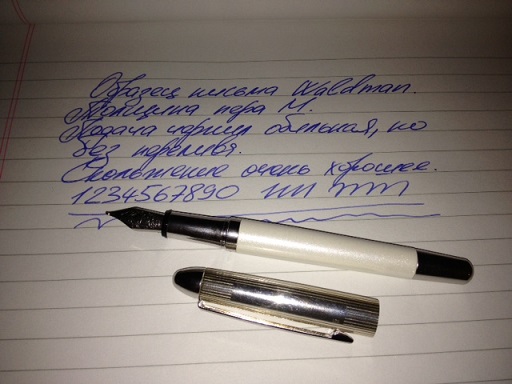 Образец письма Waldman.
Толщина пера М.
Подача чернил обильная, но
без перелива.
Скольжение очень хорошее.
1234567890